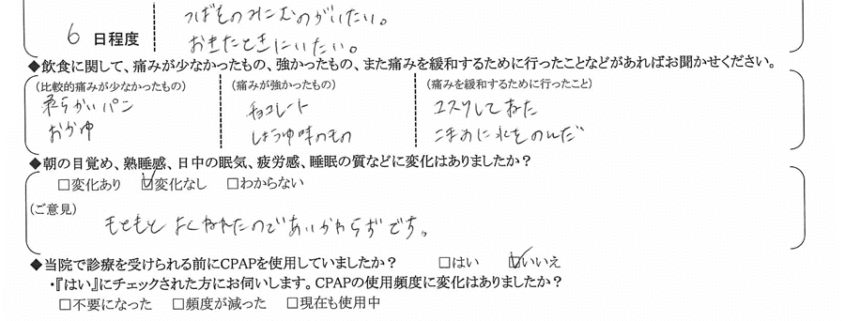 つばものみこむのがいたい。
6 日程度
おきたときにいたい。
◆飲食に関して、痛みが少なかったもの、強かったもの、また痛みを緩和するために行ったことなどがあればお聞かせください。
(比較的痛みが少なかったもの) (痛みが強かったもの) (痛みを緩和するために行ったこと)
柔らかいパン チョコレート してねた
おかゆ しょうゆ味のもの こまめに水をのんだ
◆朝の目覚め、熟睡感、日中の眠気、疲労感、睡眠の質などに変化はありましたか?
□変化あり ☑変化なし □わからない
(ご意見)
もともと よくねれたのであいかわらずです。
◆当院で診療を受けられる前にCPAPを使用していましたか? □はい ☑いいえ
・『はい』にチェックされた方にお伺いします。CPAPの使用頻度に変化はありましたか?
□不要になった □頻度が減った □現在も使用中